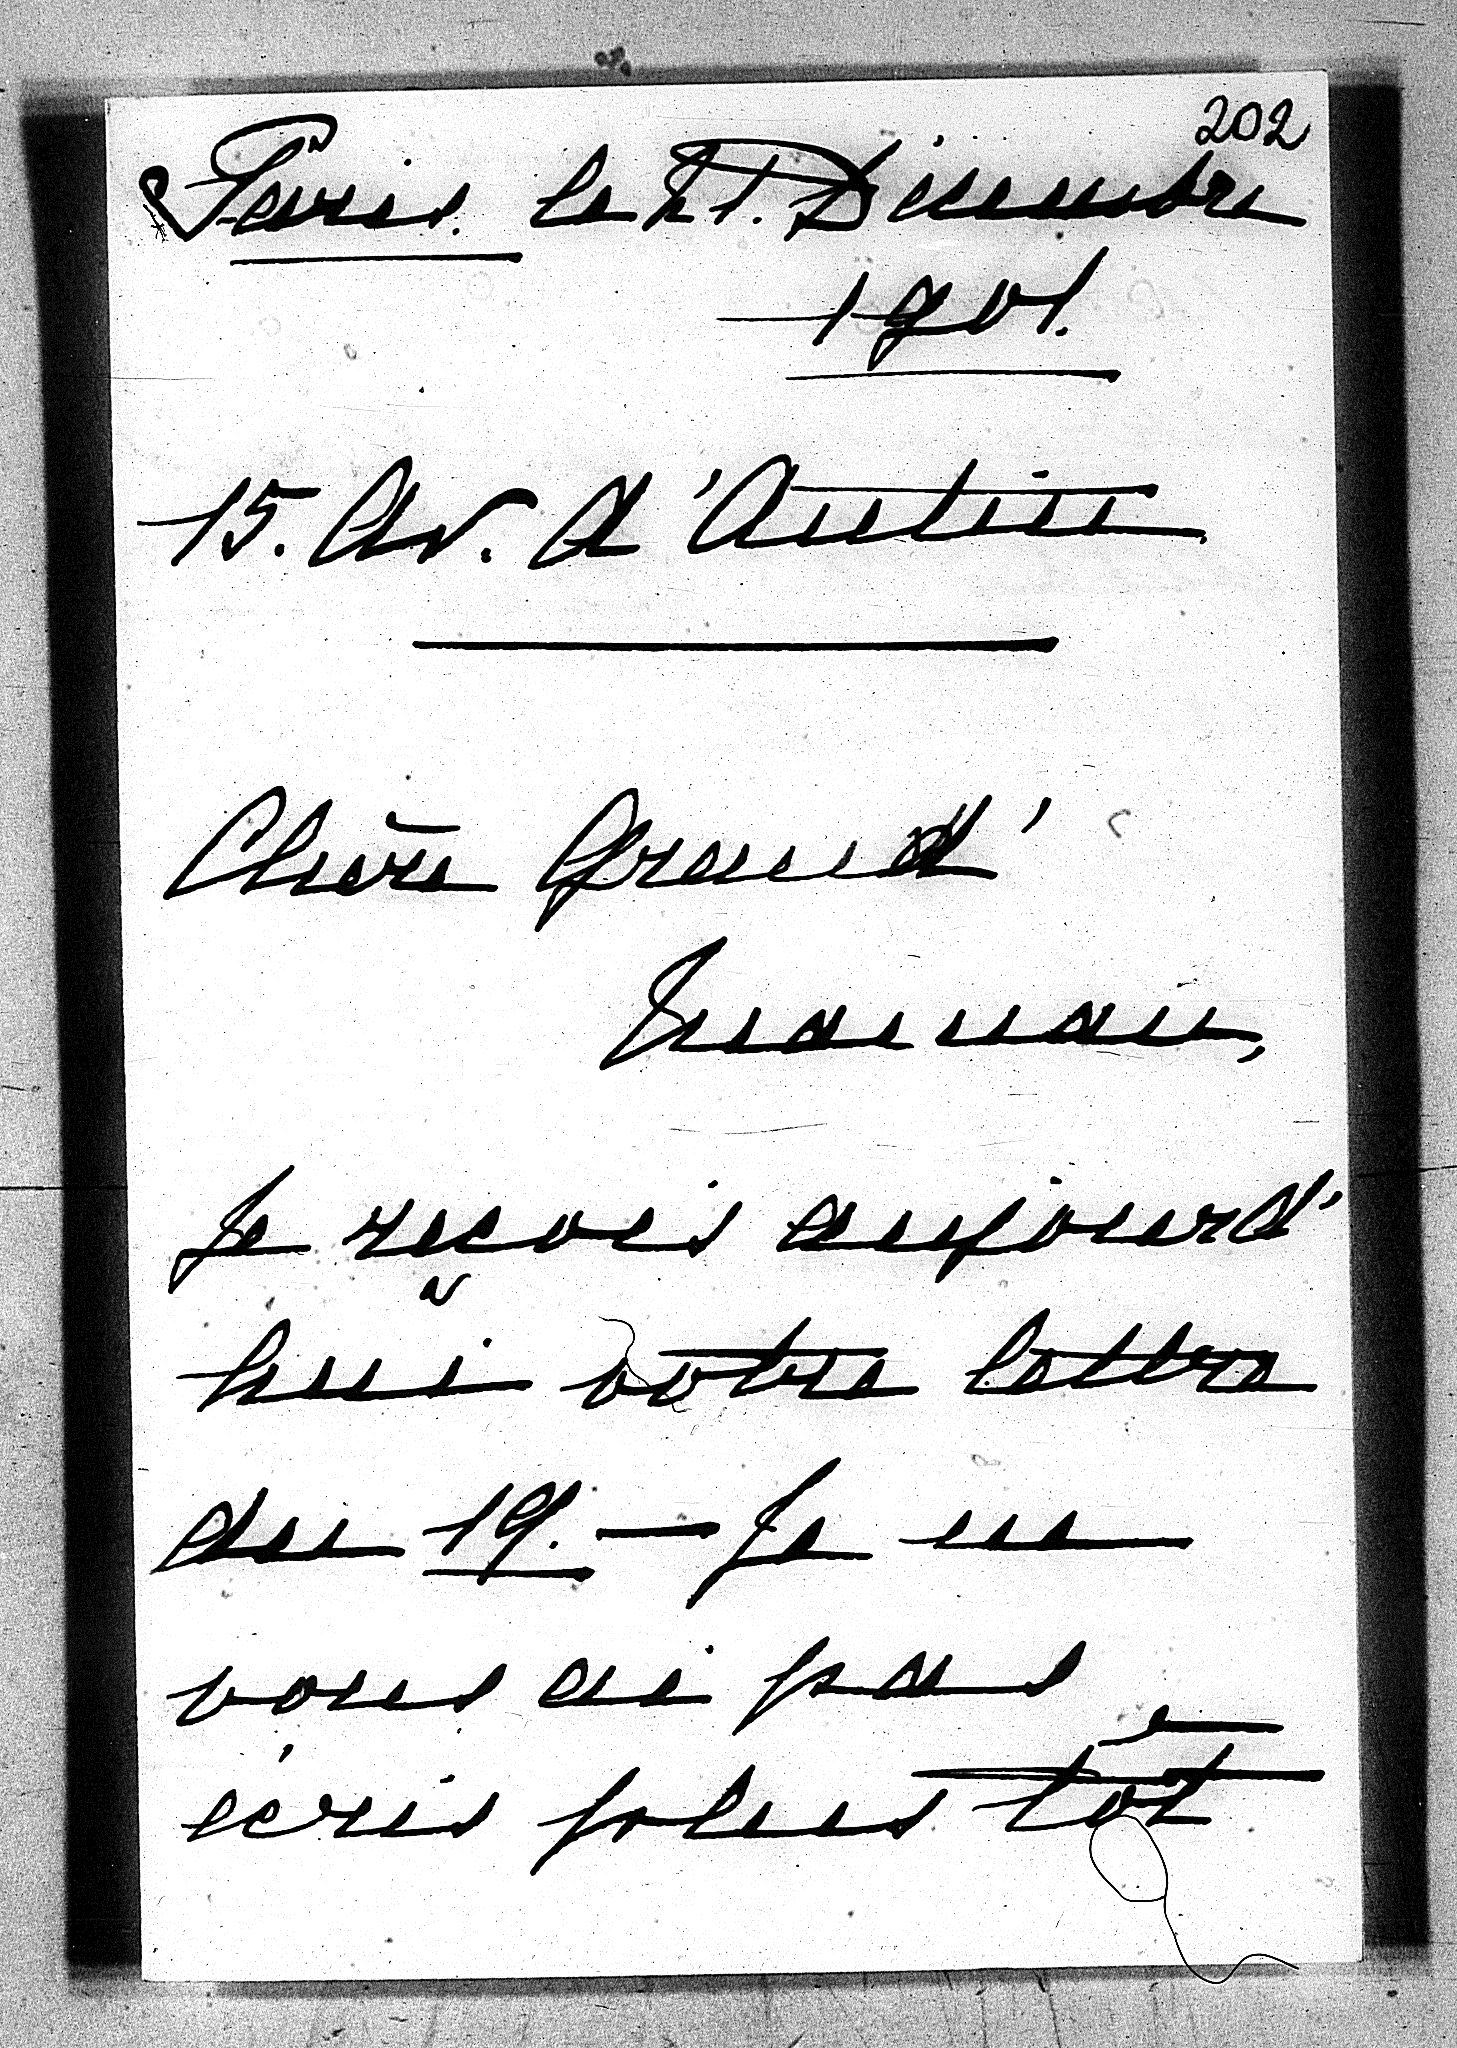 202
Paris. le 21. Décembre
1901.
15. Av. d'Antin.
Chère Grand'
maman,
Je reçois aujourd'
hui votre lettre
du 19. — Je ne
vous ai pas
écris plus tôt